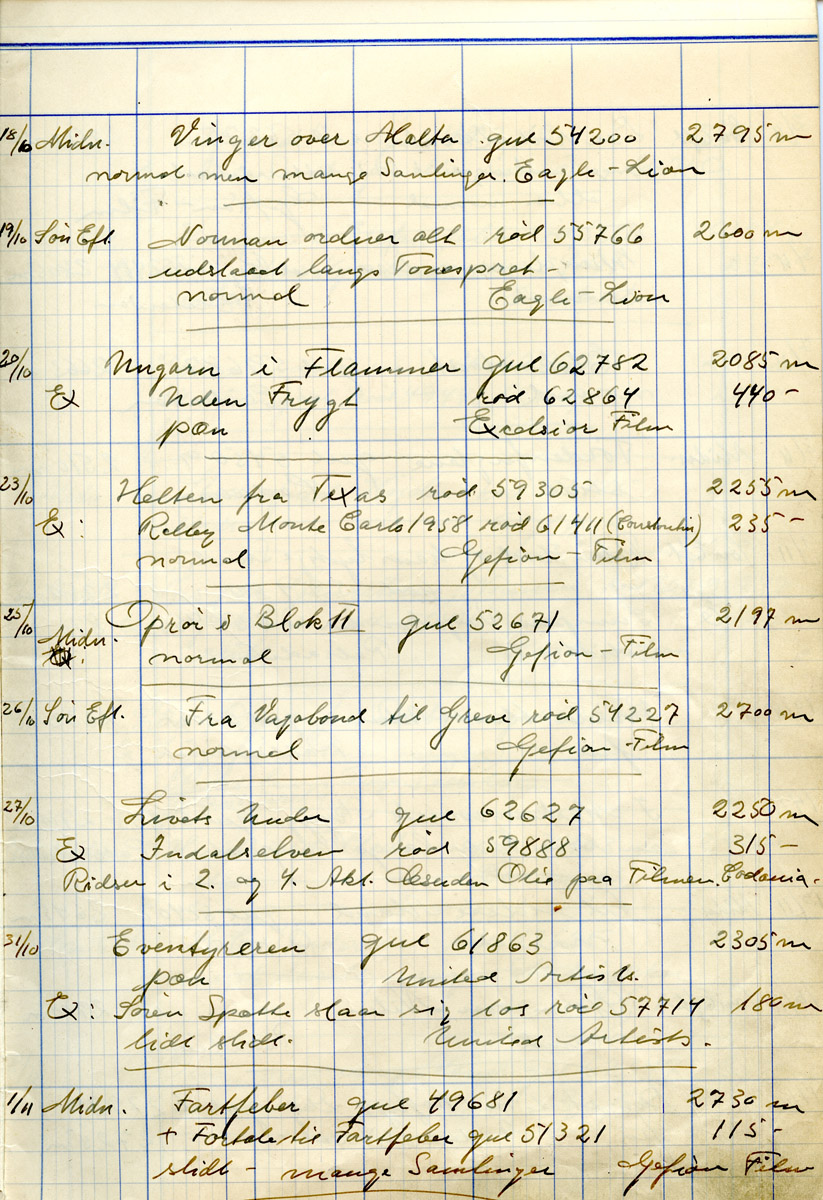 18/10 Midn. Vinger over Malta gul 54200 2795 m
normal men mange Samlinger. Eagle-Lion
19/10 Søn Eft. Norman ordner alt rød 55766 2600 m
udslaaet langs Tonespret -
normal Eagle-Lion
20/10 Ungarn i Flammer gul 62782 2085 m
Ex Uden Frygt rød 62864 440 -
pæn Excelsior Film
23/10 Helten fra Texas rød 59305 2255 m
Ex: Relley Monte Carlo 1958 rød 61411 (Constantin) 235 -
normal Gefion-Film
25/10 Midn. Oprør i Blok 11 gul 52671 2197 m
normal Gefion-Film
26/10 Søn Eft. Fra Vagabond til Greve rød 54227 2700 m
normal Gefion-Film
27/10 Livets Under gul 62627 2250 m
Ex Indalselven rød 59888 315 -
Ridser i 2. og 4. Akt. Desuden Olie paa Filmen. Codania.
31/10 Eventyreren gul 61863 2305 m
pæn United Artists.
Ex: Søren Spætte slaar sig løs rød 57714 180 m
lidt slidt. United Artists.
1/11 Midn. Fartfeber gul 49681 2730 m
+ Fortale til Fartfeber gul 51321 115 -
slidt - mange Samlinger Gefion Film